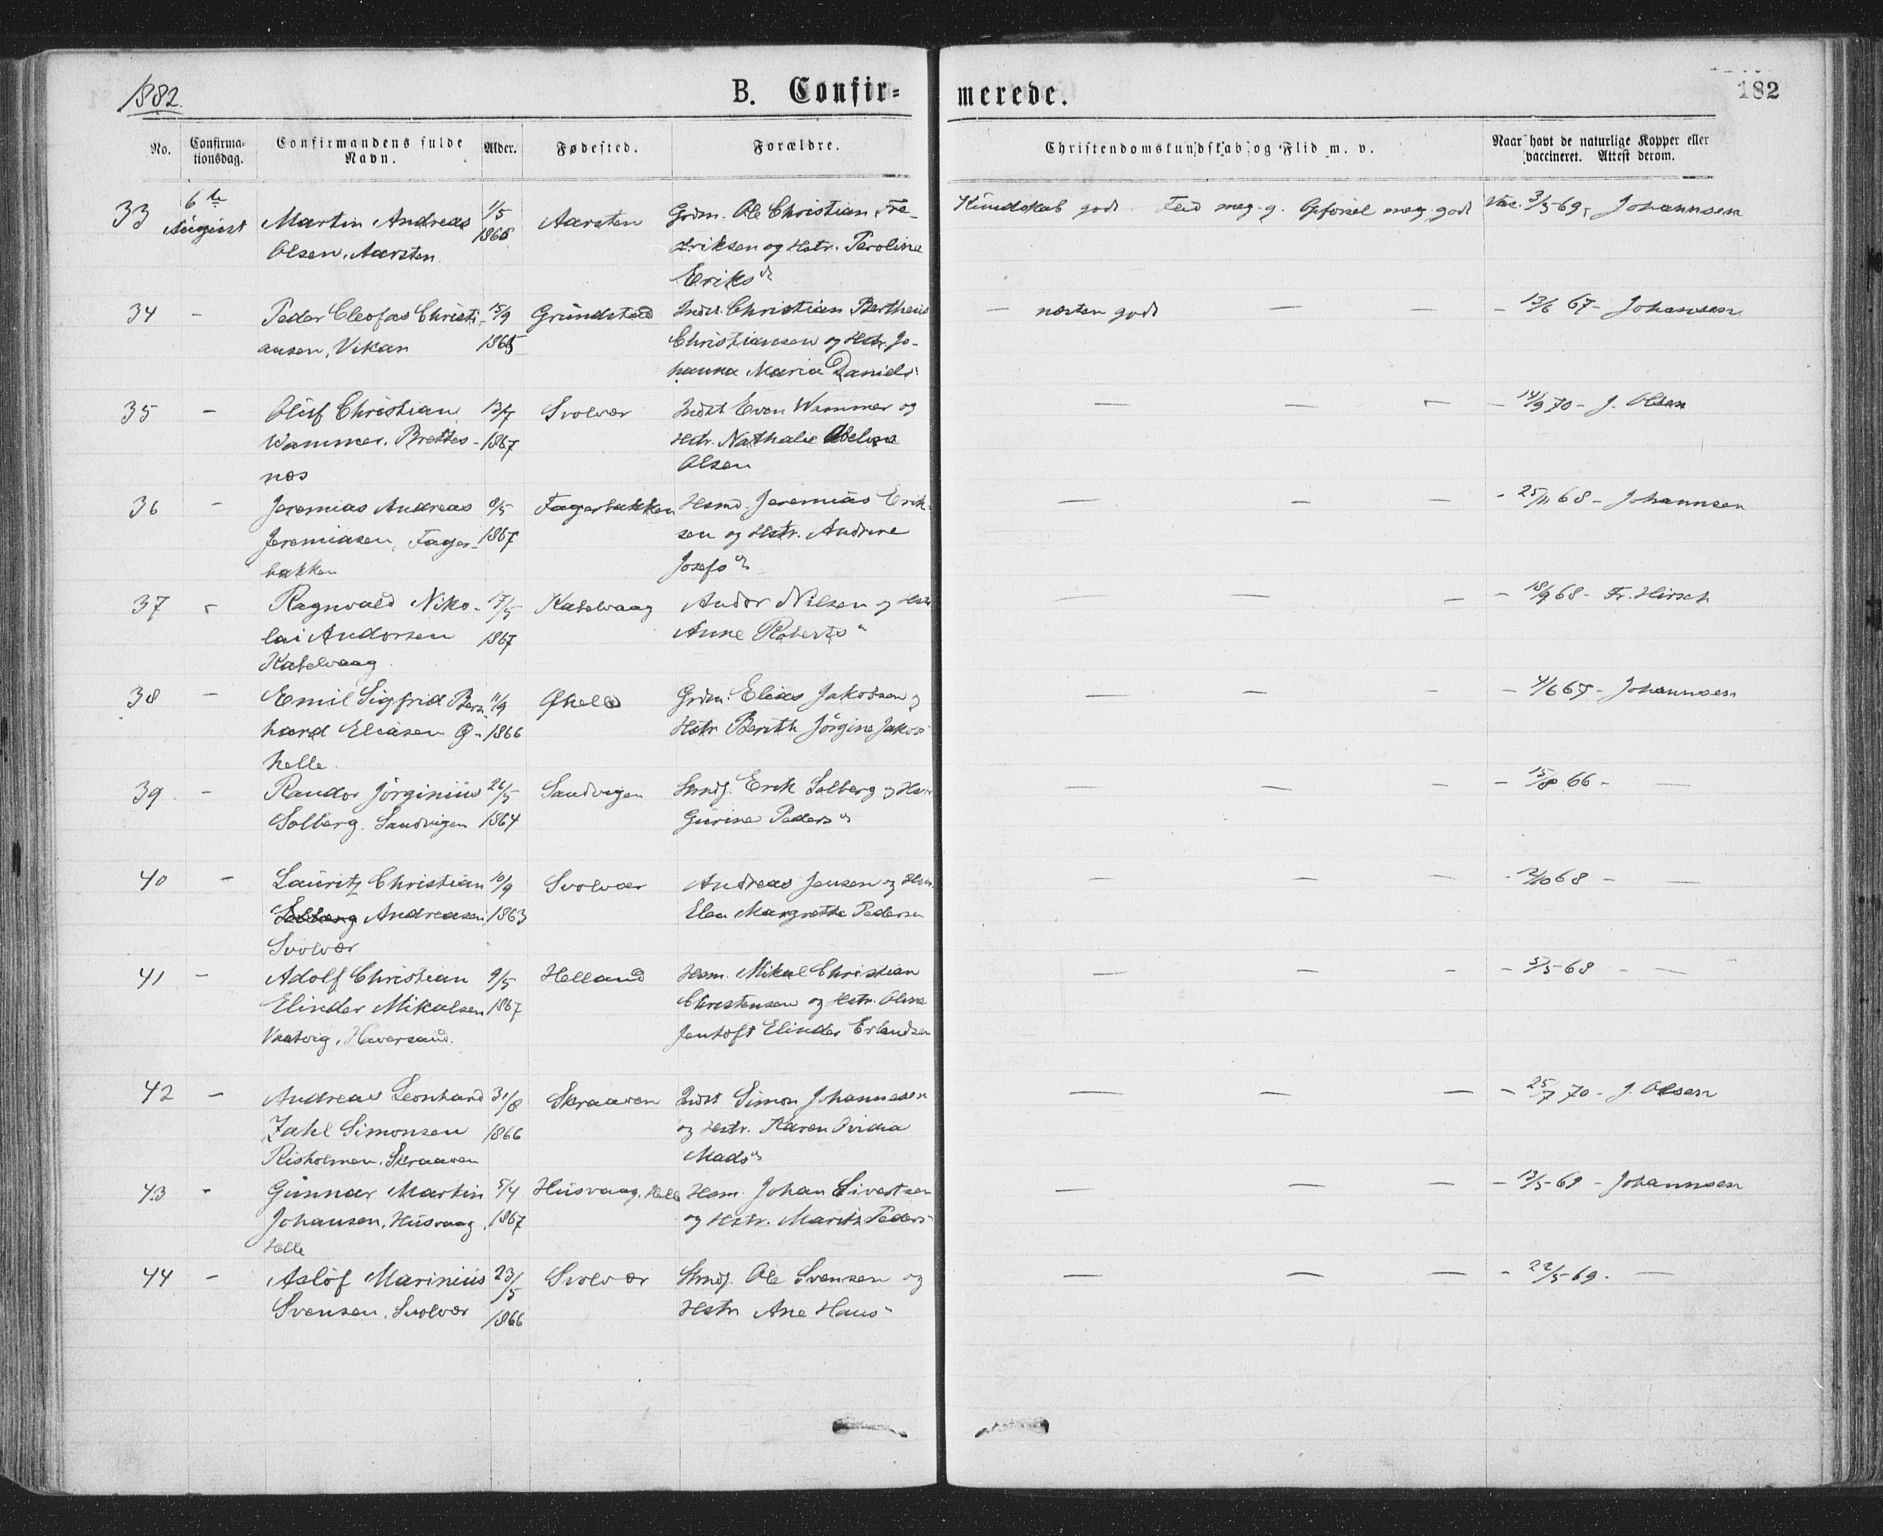 1882.
B. Confir-
merede.
182
No.
Confirma-
tionsdag.
Confirmandens fulde
Navn.
Alder.
Fødested.
Forældre.
Christendomskundskab og Flid m. v.
Naar havt de naturlige Kopper eller
vaccineret. Attest derom.
33 6te Martin Andreas 1/5 Aarsten Grdm. Ole Christian Fre- Kundskab godt Flid meg. g. Opførsel meg. godt Vac. 3/5 69, Johannsen
August Olsen, Aarsten 1866 driksen og Hstr. Peroline
Eriksd
34 – Peder Cleofas Christi- 15/9 Grundstad Indst. Christian Bertheus – næsten godt – – – 13/6 67 – Johannsen
ansen, Vikan 1865 Christiansen og Hstr. Jo-
hanna Maria Daniels
35 – Oluf Christian 13/7 Svolvær Indst Even Wammer og – – – – 14/9 70 – J. Olsen
Wammer. Brettes- 1867 Hstr. Nathalie Abeline
næs Olsen
36 – Jeremias Andreas 8/5 Fagerbakken Hsmd. Jeremias Erik- – – – – 25/11 68 – Johannsen
Jeremiasen, Fager- 1867 sen og Hstr. Andrine
bakken Josefsd
37 – Ragnvald Niko- 17/5 Kabelvaag Andor Nilsen og Hstr – – – – 18/9 68 – Fr. Hirsch
lai Andorsen 1867 Anne Roberts
Kabelvaag
38 – Emil Sigfrid Bern- 11/9  Øhelle Grdm. Elias Jakobsen og – – – – 4/6 67 – Johannsen
hard Eliasen Ø- 1866 Hstr Berith Jørgine Jakobs
helle.
39 – Randor Jørginius 26/5 Sandvigen Strndf. Erik Solberg og Hstr – – – – 15/8 66 – –
Solberg. Sandvigen 1864 Gurine Pedersd
40 – Lauritz Christian 10/9 Svolvær Andreas Jensen og Hstr. – – – – 12/10 68 – –
Solberg Andreasen, 1863 Elen Margrethe Pedersen
Svolvær
41 – Adolf Christian 9/5 Helland Hsm. Mikal Christian – – – – 5/5 68 – –
Elinder Mikalsen 1867 Christensen og Hstr. Oline
Vaatvig, Haversand. Jentoft Elinder Erlandsen
42 – Andreas Leonhard 31/8 Skraaven Indst Simon Johannesen – – – – 25/7 70 – J. Olsen
Zahl Simonsen 1866 og Hstr. Karen Ovidia
Risholmen, Skraaven Madsd
43 – Gunnar Martin 5/4 Husvaag, Helle Hsm. Johan Sivertsen – – – – 13/5 69 – Johannsen
Johansen, Husvaag, 1867 og Hstr. Marith Peders
Helle
44 – Aslof Marinius 23/5 Svolvær Strndf. Ole Svensen og – – – – 22/5 69. –
Svensen, Svolvær 1866 Hstr Ane Hans